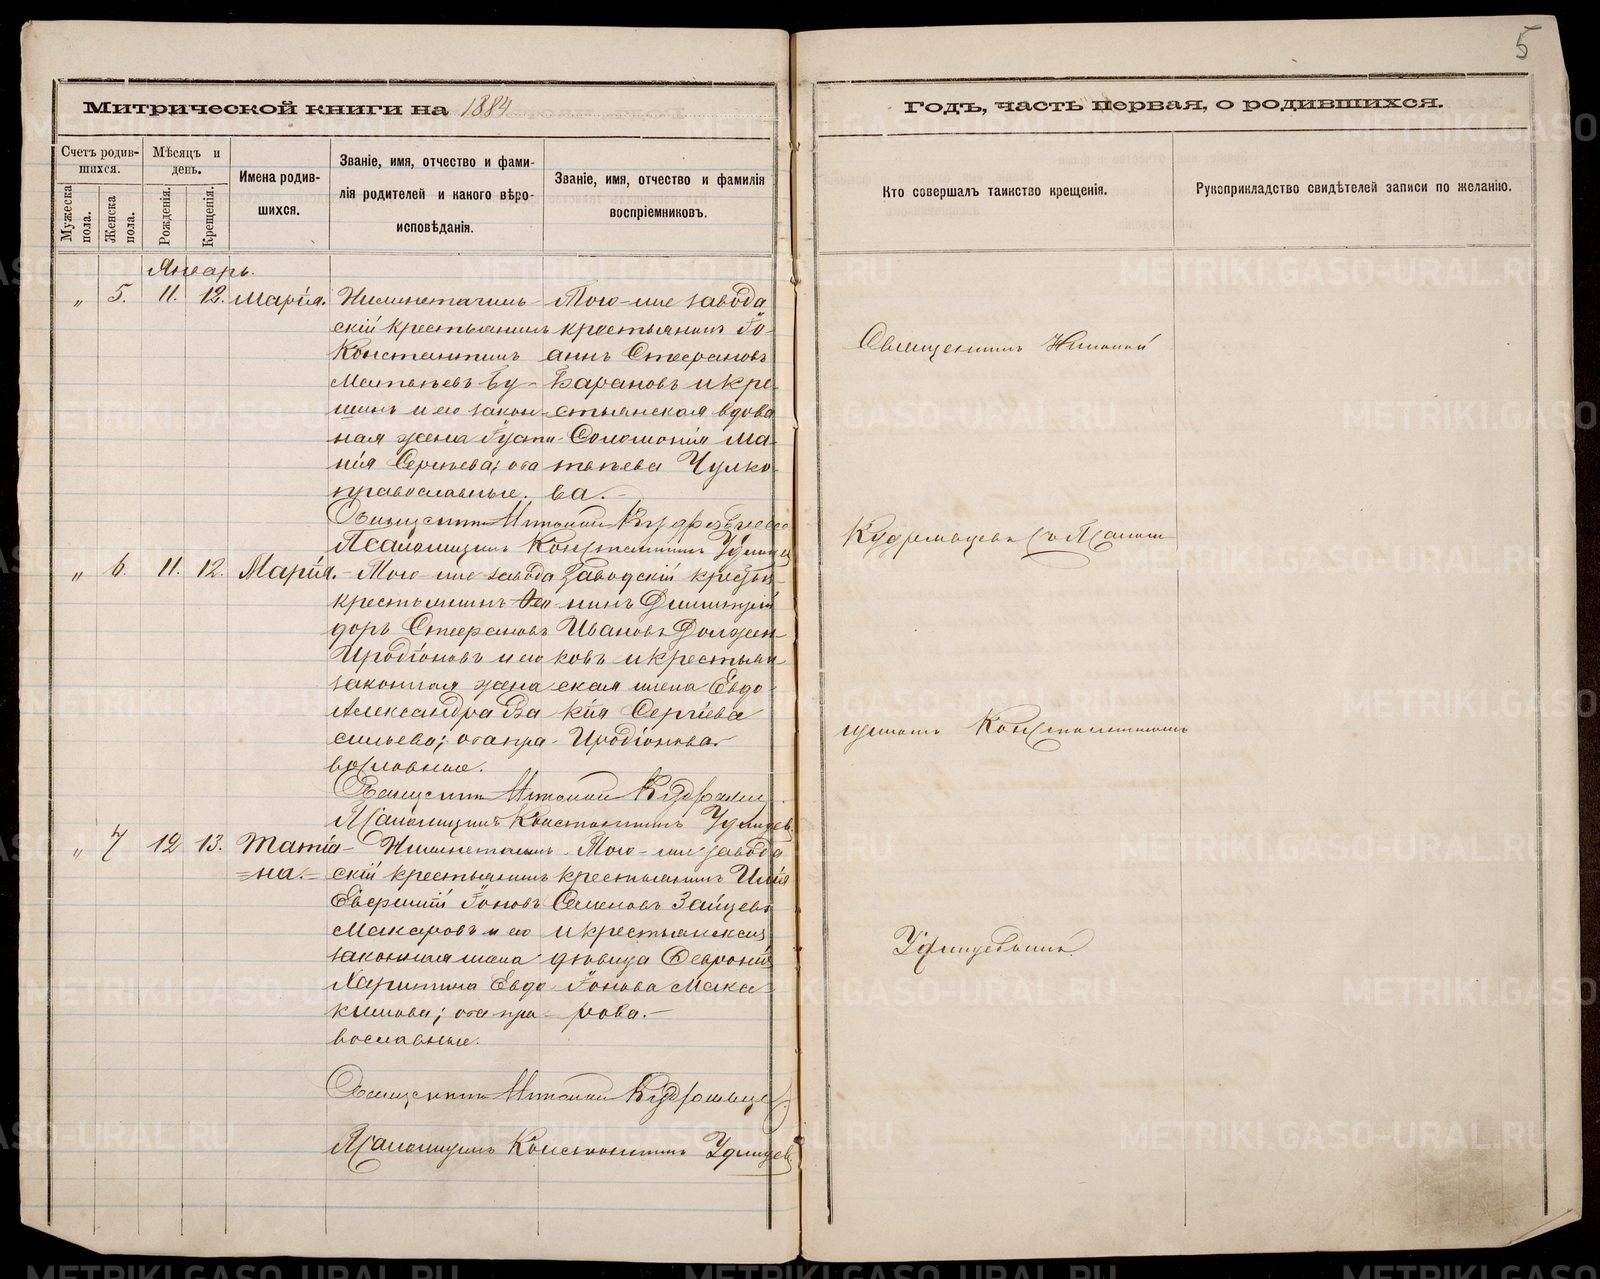 5
Митрической книги на 1884
Годъ, часть первая, о родившихся.
Счетъ родив-
шихся.
Мужеска
пола.
Женска
пола.
Мѣсяцъ и
день.
Рожденія.
Крещенія.
Имена родив-
шихся.
Званіе, имя, отчество и фами-
лія родителей и какого вѣро-
исповѣданія.
Званіе, имя, отчество и фамилія
воспріемниковъ.
Кто совершалъ таинство крещенія.
Рукоприкладство свидѣтелей записи по желанію.
Январь.
„ 5. 11. 12. Марія.
скій крестьянинъ
Константинъ
Матвѣевъ Бу-
шинъ и его закон-
ная жена Іуста-
нія Сергѣева; оба
православные.
Того-же завода
крестьянинъ Іо-
аннъ Стефановъ
Барановъ и кре-
стьянская вдова
Соломонія Ма-
твѣева Чулко-
ва.-
Священникъ Антоній
Псаломщикъ Константинъ Удинцев
„ 6. 11. 12. Марія.-
Того-же завода
крестьянинъ Ѳео
доръ Стефановъ
Иродіоновъ и его
законная жена
Александра Ва
сильева; оба пра-
вославные.
заводскій крестья
нинъ Димитрій
Ивановъ Должен-
ковъ и крестьян
ская жена Евдо-
кія Сергіева
Иродіонова-
Священникъ Антоній
Псаломщикъ Константинъ Удинцев
„ 7 12 13. Татіа-
=на.=
скій крестьянинъ
Евфимій Іоновъ
Макаровъ и его
законная жена
Харитина Евдо-
кимова; оба пра-
вославные.
Того-же завода
крестьянинъ Илія
Семеновъ Зайцевъ
и крестьянская
дѣвица Февронія
Іонова Мака-
рова.-
Священникъ Антоній Кудрявцев
Псаломщикъ Константинъ Удинцев
Священникъ Антоній
Кудрявцевъ съ Псалом
щикомъ Константиномъ
Удинцевымъ
METRIKI.GASO-URAL.RU